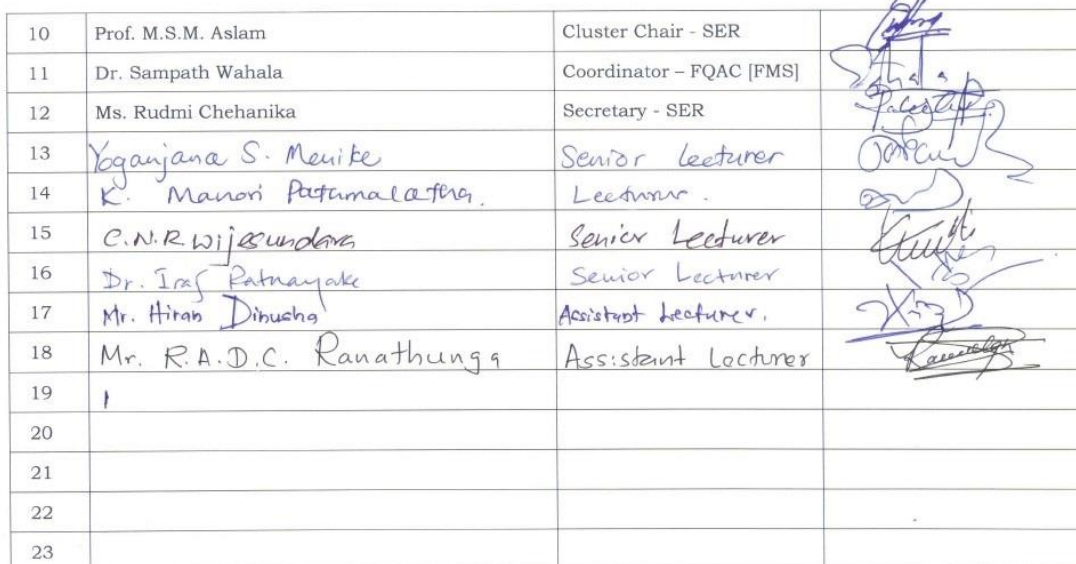 10 Prof. M.S.M. Aslam Cluster Chair - SER
11 Dr. Sampath Wahala Coordinator – FQAC [FMS]
12 Ms. Rudmi Chehanika Secretary - SER
13 Yoganjana S. Menike Senior Lecturer
14 K. Manori Pathumalatha. Lecturer.
15 C.N.R Wijesundara Senior Lecturer
16 Dr. Iraj Ratnayake Senior Lecturer
17 Mr. Hiran Dinusha Assistant Lecturer.
18 Mr. R.A.D.C. Ranathunga Assistant Lecturer
19
20
21
22
23